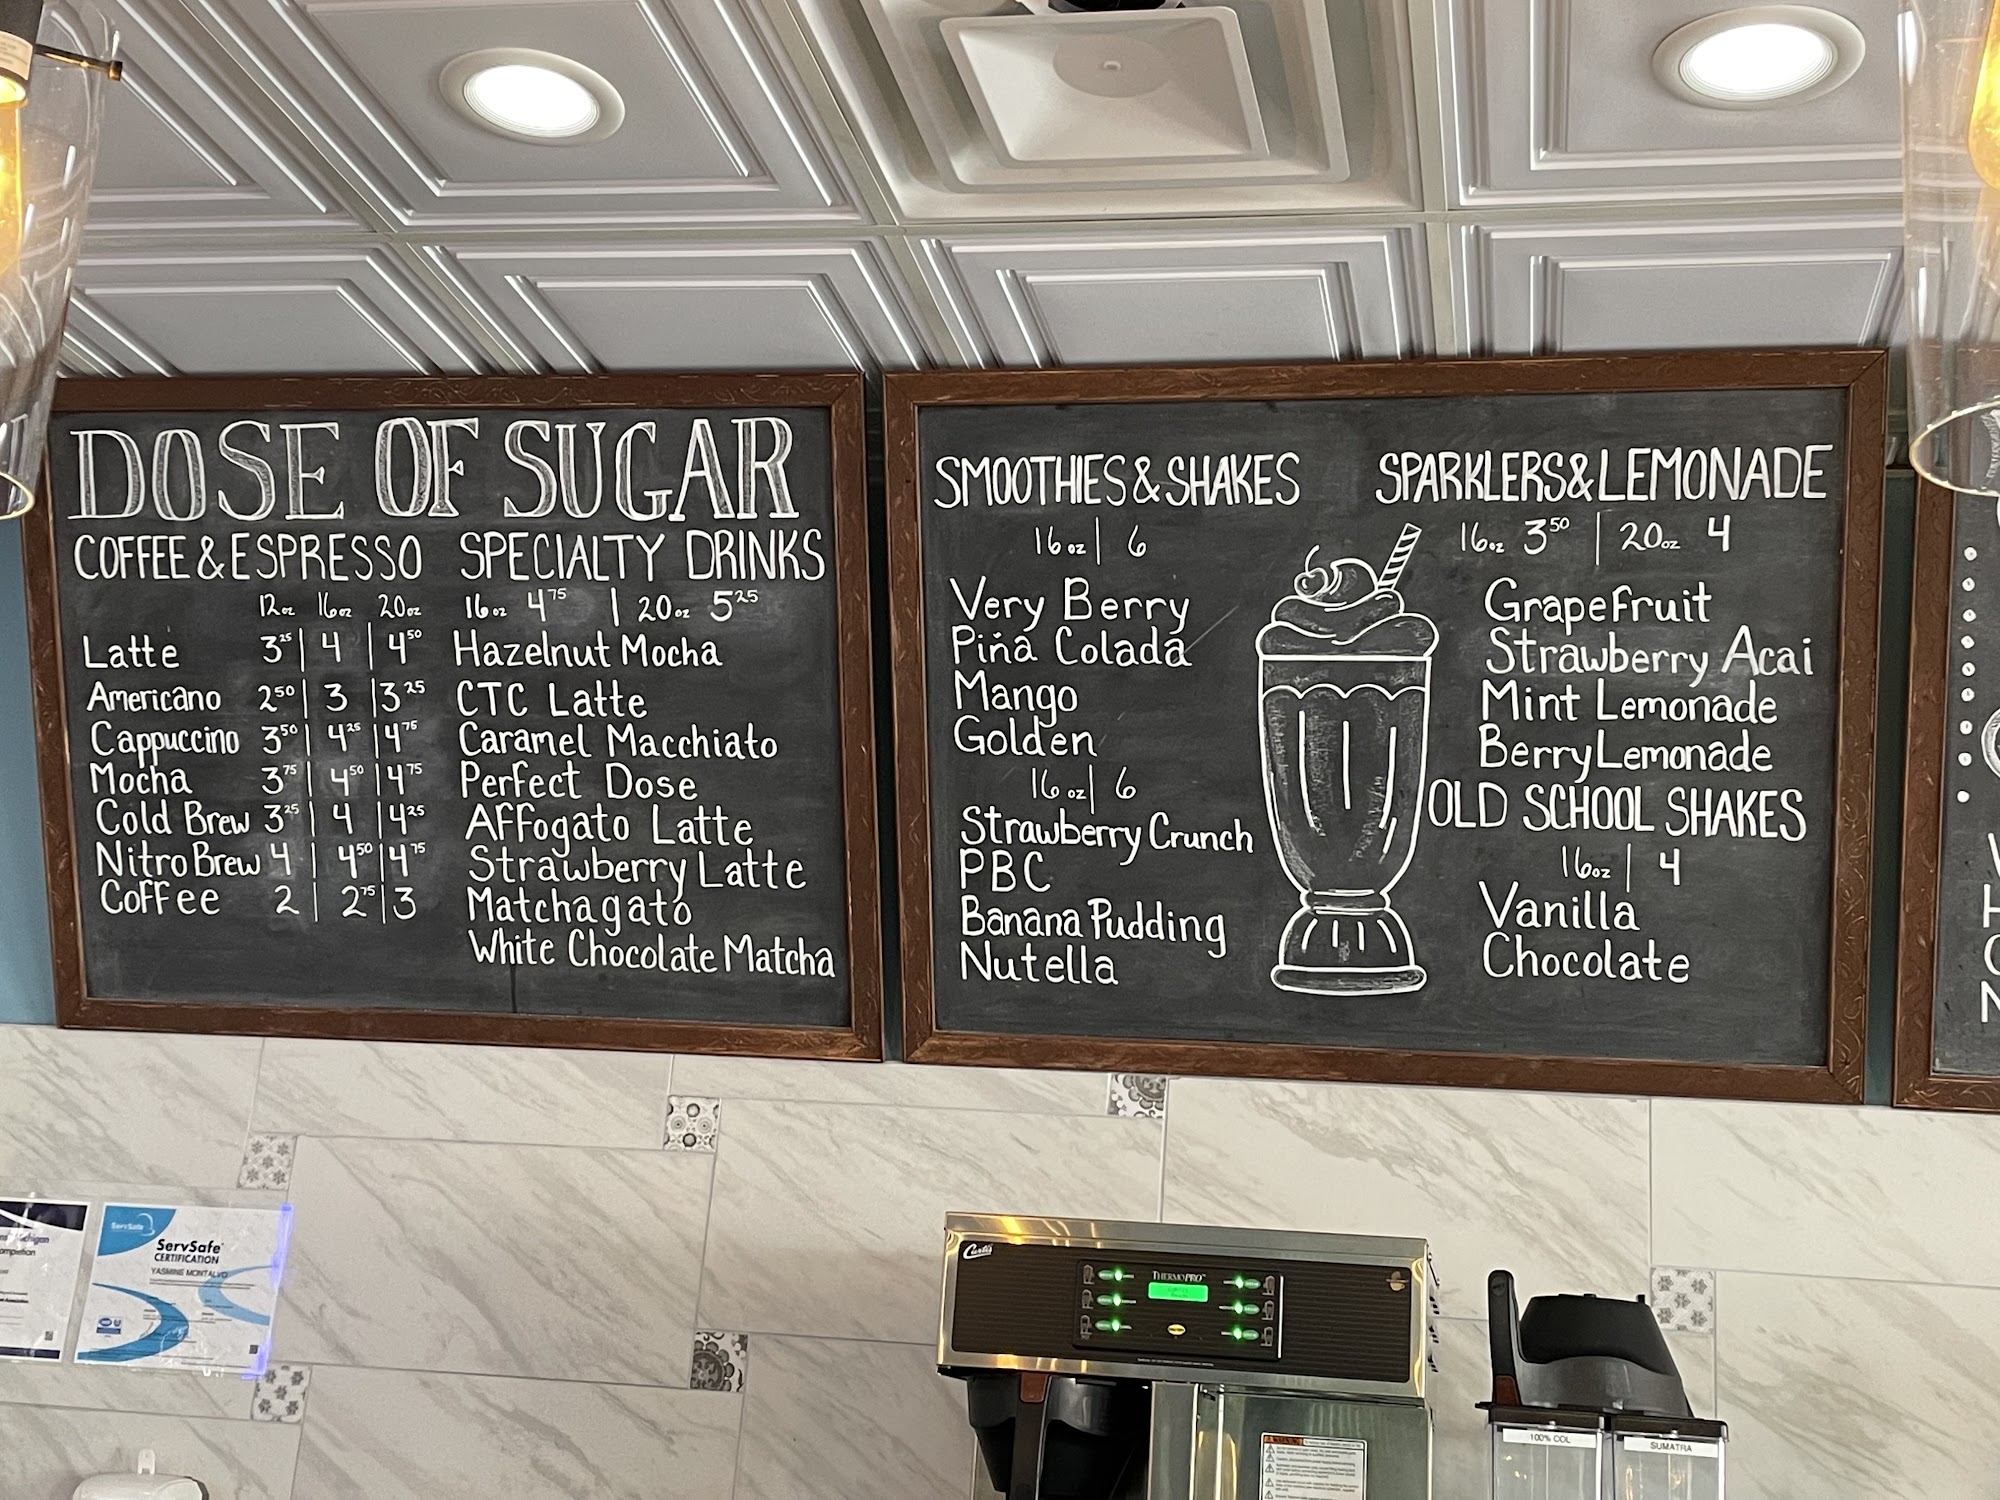 DOSE OF SUGAR
COFFEE & ESPRESSO
12oz 16oz 20oz
Latte 3²⁵ | 4 | 4⁵⁰
Americano 2⁵⁰ | 3 | 3²⁵
Cappuccino 3⁵⁰ | 4²⁵ | 4⁷⁵
Mocha 3⁷⁵ | 4⁵⁰ | 4⁷⁵
Cold Brew 3²⁵ | 4 | 4²⁵
Nitro Brew 4 | 4⁵⁰ | 4⁷⁵
Coffee 2 | 2⁷⁵ | 3
SPECIALTY DRINKS
16oz 4⁷⁵ | 20oz 5²⁵
Hazelnut Mocha
CTC Latte
Caramel Macchiato
Perfect Dose
Affogato Latte
Strawberry Latte
Matchagato
White Chocolate Matcha
SMOOTHIES & SHAKES
16oz | 6
Very Berry
Piña Colada
Mango
Golden
16oz | 6
Strawberry Crunch
PBC
Banana Pudding
Nutella
SPARKLERS & LEMONADE
16oz 3⁵⁰ | 20oz 4
Grapefruit
Strawberry Acai
Mint Lemonade
Berry Lemonade
OLD SCHOOL SHAKES
16oz | 4
Vanilla
Chocolate
ServSafe
ServSafe
CERTIFICATION
YASMINE MONTALVO
Curtis
THERMOPRO
100% COL
SUMATRA